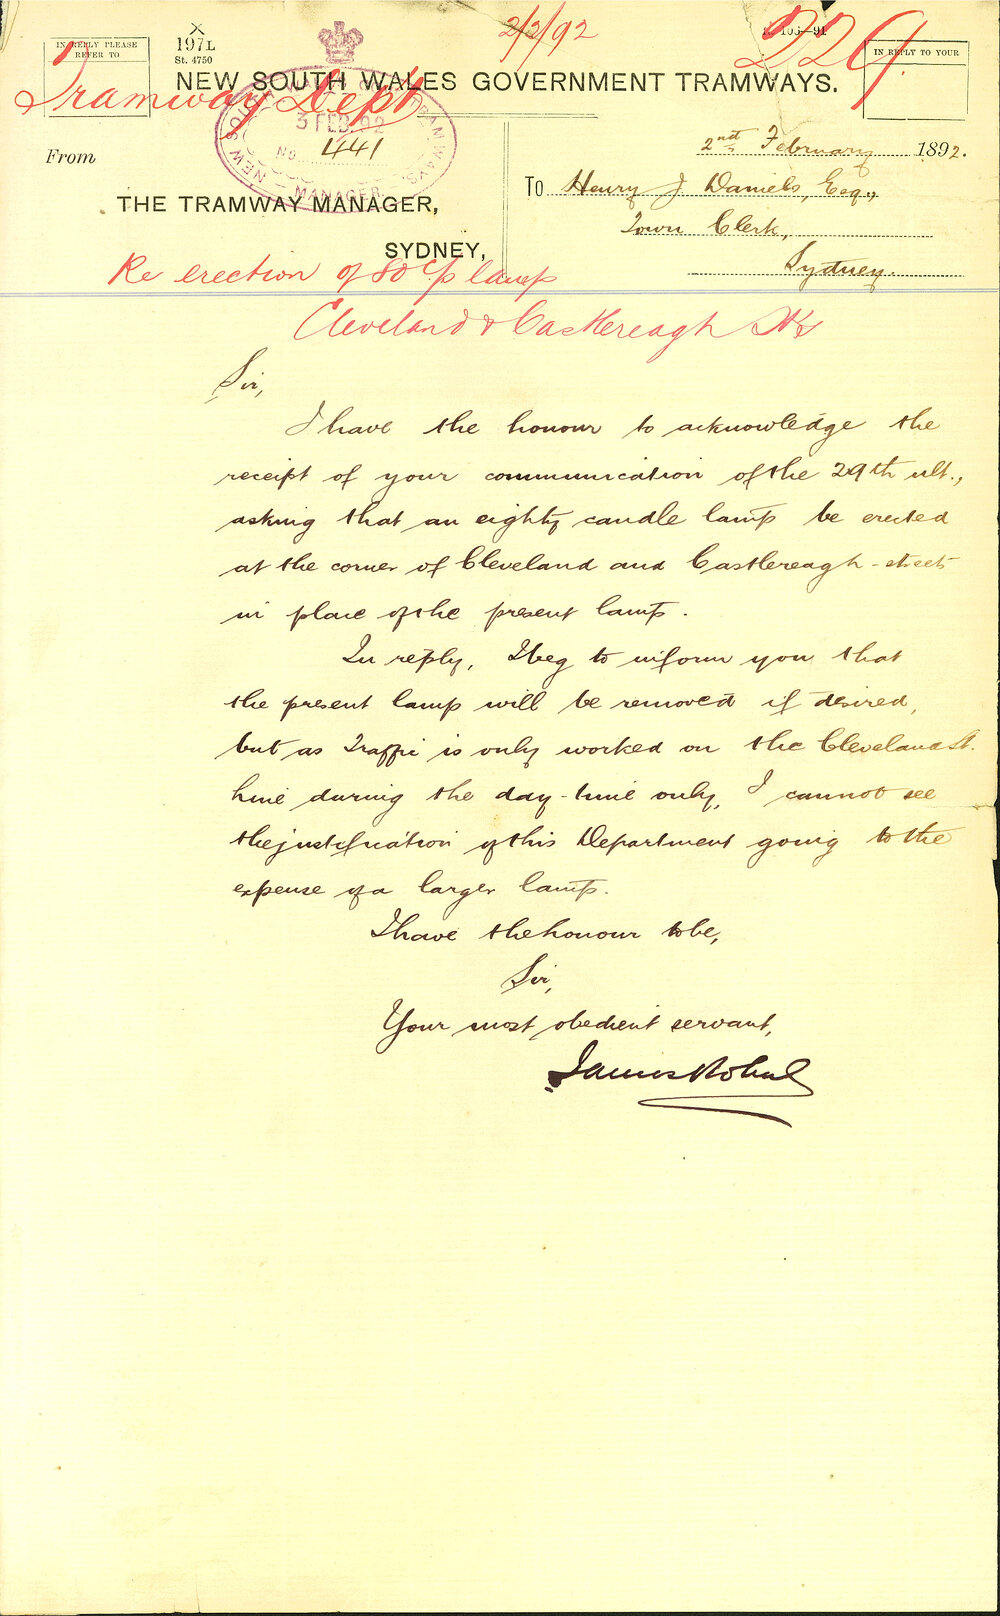 2/2/92
229.
IN REPLY PLEASE
REFER TO
X
197L
St. 4750
IN REPLY TO YOUR
NEW SOUTH WALES GOVERNMENT TRAMWAYS.
Tramway Dept
3 FEB. 92
No 441
MANAGER
From
2nd February 1892.
THE TRAMWAY MANAGER,
SYDNEY,
To Henry J Daniels, Esq.,
Town Clerk,
Sydney.
Re erection of 80 c/p lamp
Cleveland & Castlereagh Sts
Sir,
I have the honour to acknowledge the
receipt of your communication of the 29th ult.,
asking that an eighty candle lamp be erected
at the corner of Cleveland and Castlereagh-streets
in place of the present lamp.
In reply, I beg to inform you that
the present lamp will be removed if desired,
but as traffic is only worked on the Cleveland St.
line during the day-time only, I cannot see
the justification of this Department going to the
expense of a larger lamp.
I have the honour to be,
Sir,
Your most obedient servant,
James